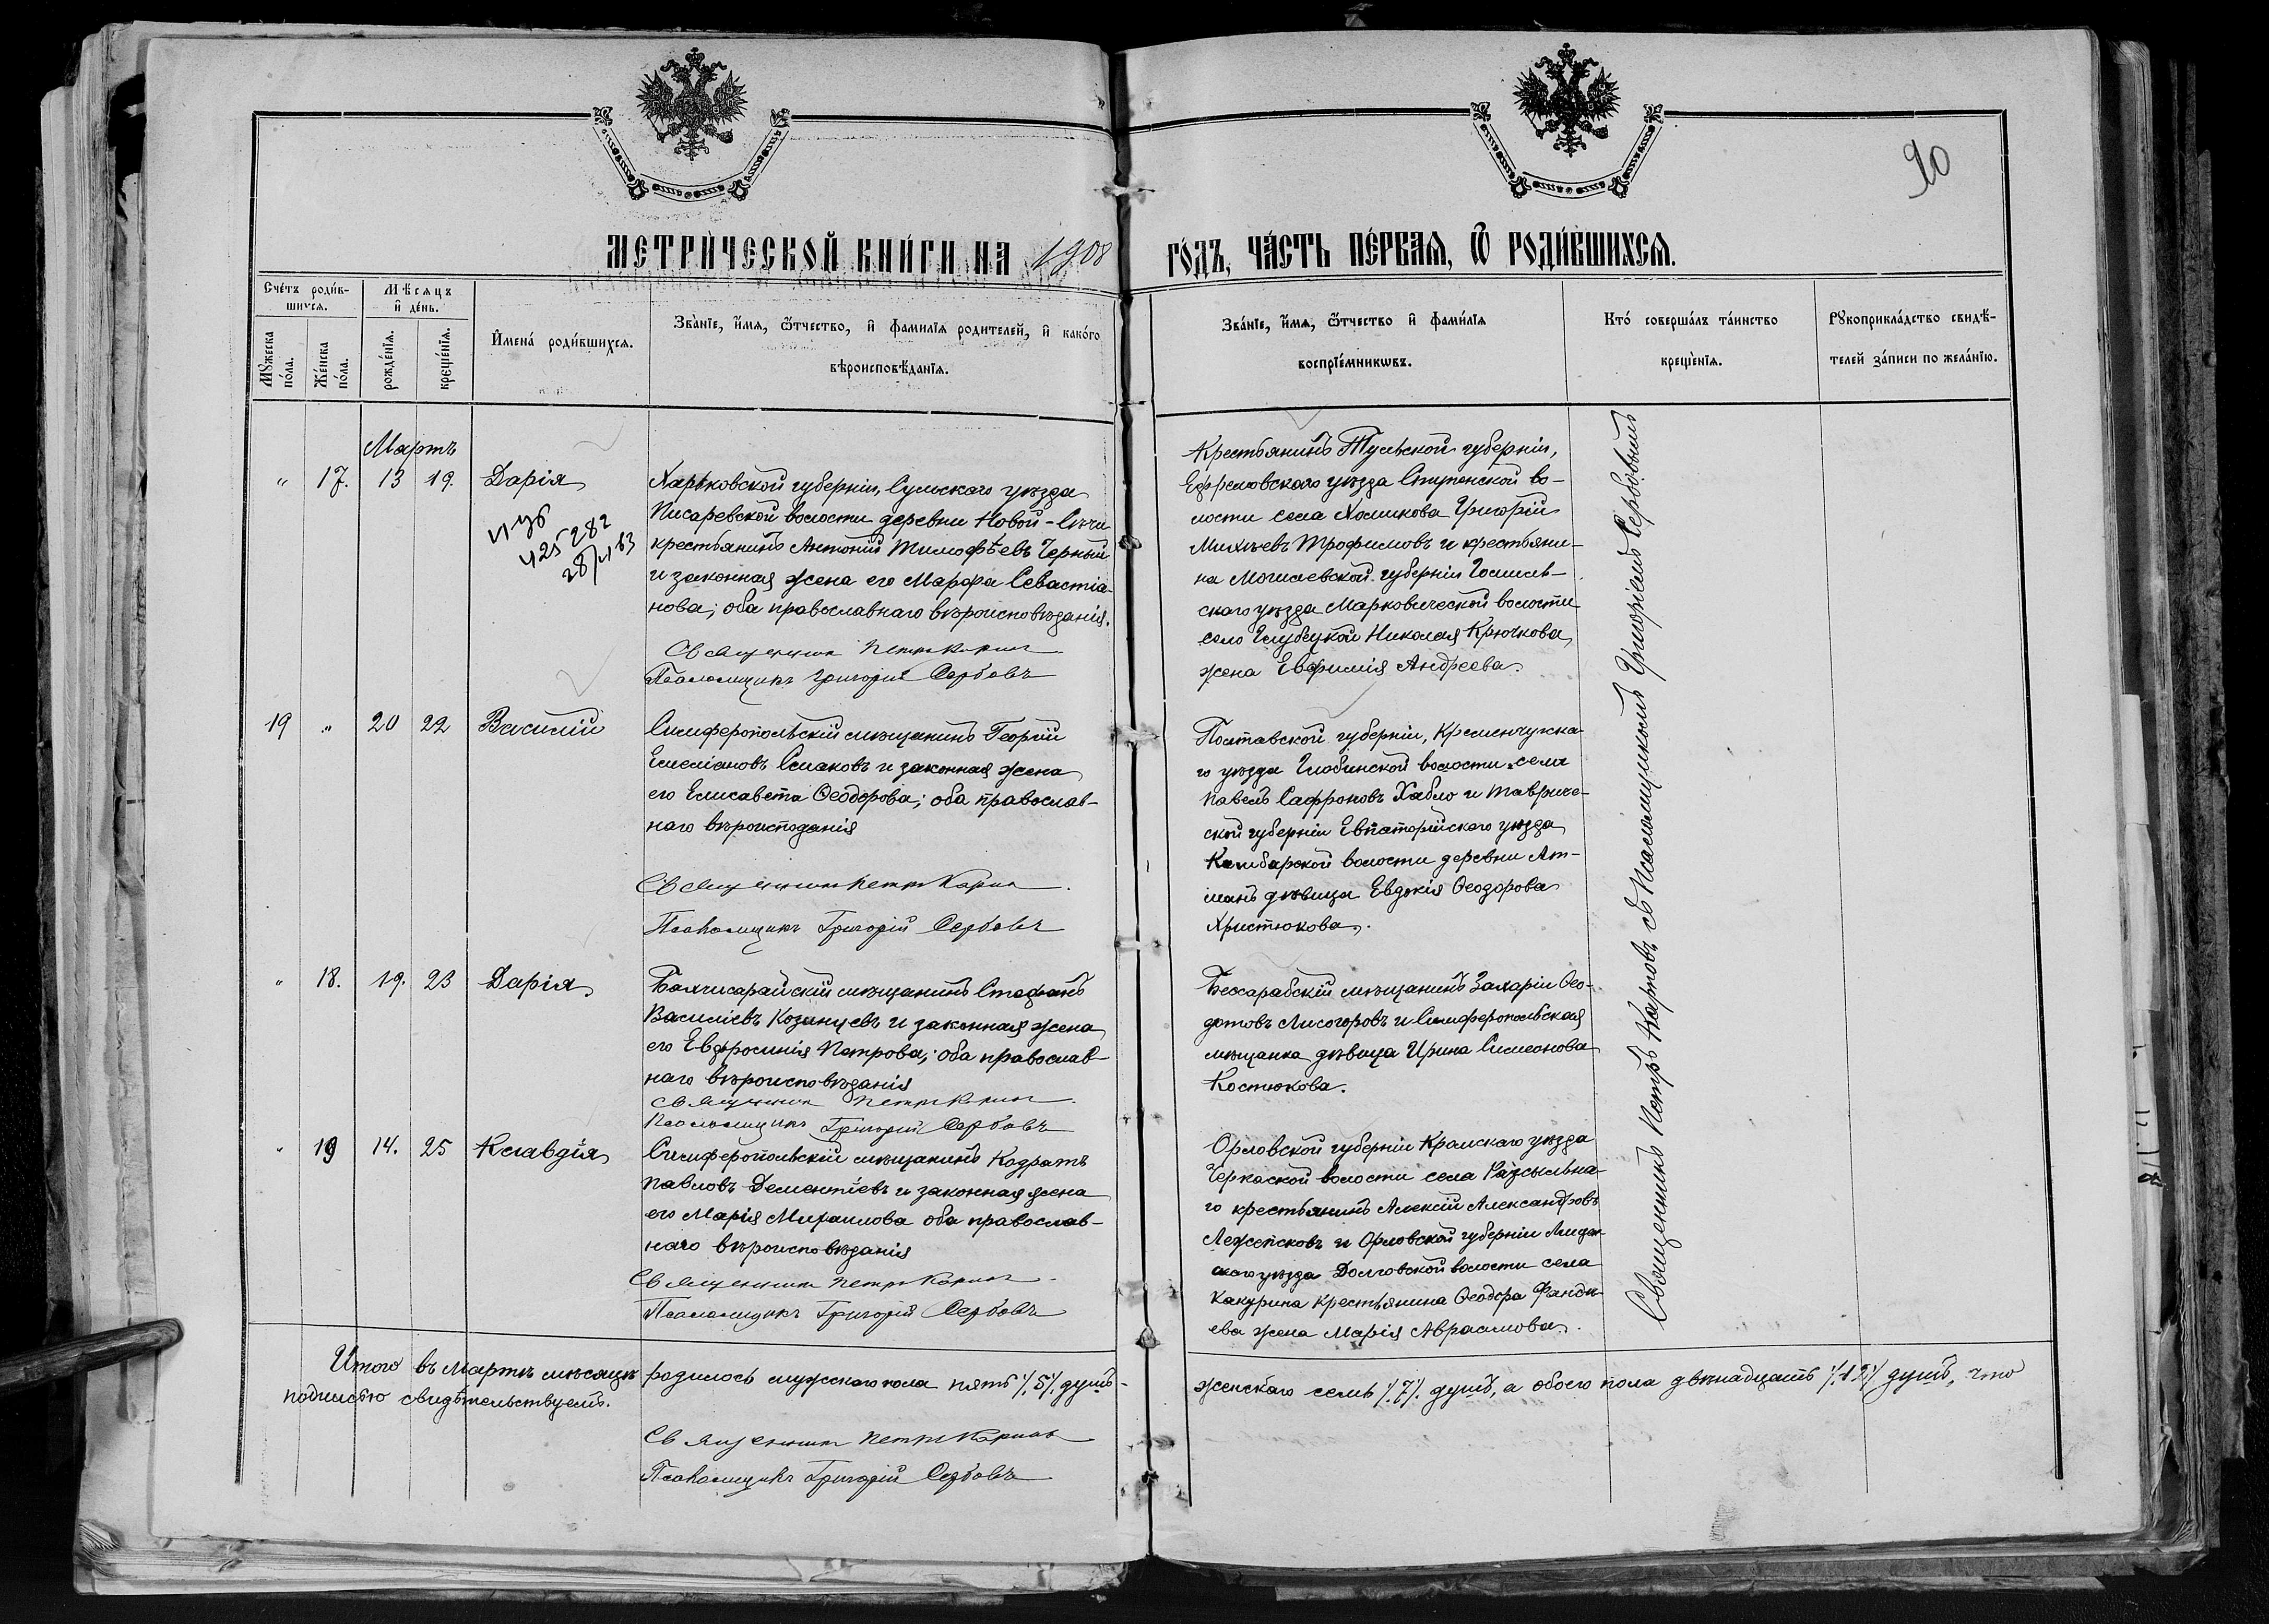 90
МЕТРИ́ЧЕСКОЙ КНИ́ГИ НА 1908 ГО́ДЪ, ЧА́СТЬ ПЕ́РВАЯ, Ѿ РОДИ́ВШИХСЯ.
Сче́тъ роди́в-
шихся.
Мѣсяцъ
и де́нь.
Мꙋжеска
по́ла.
Же́нска
по́ла.
рожде́нїя.
креще́нїя.
Имена́ роди́вшихся.
Зва́нїе, и́мя, ѻ́тчество, и фамилїя родителей, и како́го
вѣроисповѣданїя.
Зва́нїе, и́мя, ѻ́тчество и фами́лїя
воспрїе́мникѡвъ.
Кто́ соверша́лъ та́инство
креще́нїя.
Рꙋкоприкла́дство свидѣ-
телей за́писи по жела́нїю.
Мартъ
" 17. 13 19. Дарія
425282
Харьковской губерніи, Сумьского уѣзда
Писаревской волости деревни Новой-Сѣчи
крестьянинъ Антоній Тимофѣевъ Черный
и законная жена его Марфа Севастіа-
нова; оба православнаго вѣроисповѣданія.
Священникъ Петръ Карпов
Псаломщикъ Григорій Сербовъ
Крестьянинъ Тульской губерніи,
Ефремовскаго уѣзда Ступенской во-
лости села Хомикова Григорій
Михѣевъ Трофимовъ и крестьяни-
на Могилевской губерніи Гомель-
скаго уѣзда Марковической волости
село Глубоцкой Николая Крючкова
жена Евфимія Андреева.
19 " 20 22 Василій
Симферопольскій мѣщанинъ Георгій
Емеліановъ Семаковъ и законная жена
его Елисавета Ѳеодорова; оба православ-
наго вѣроисподанія
Священникъ Петръ Карпов
Псаломщикъ Григорій Сербовъ
Полтавской губерніи, Кременчугска-
го уѣзда Глобинской волости села
Павелъ Сафроновъ Хабло и Тавриче-
ской губерніи Евпаторійского уѣзда
Камбарской волости деревни Ат-
манъ дѣвица Евдокія Ѳеодорова
Христюкова.
" 18. 19. 23 Дарія
Бахчисарайскій мѣщанинъ Стефанъ
Василіевъ Козинцевъ и законная жена
его Евфросинія Петрова; оба православ-
наго вѣроисповѣданія
Священникъ Петръ Карпов
Псаломщикъ Григорій Сербовъ
Бессарабскій мѣщанинъ Захарій Ѳео-
дотовъ Лисогоровъ и Симферопольская
мѣщанка дѣвица Ирина Симеонова
Костюкова.
" 19 14. 25 Клавдія
Симферопольскій мѣщанинъ Кодратъ
Павловъ Дементіевъ и законная жена
его Марія Михаилова оба православ-
наго вѣроисповѣданія
Священникъ Петръ Карпов
Псаломщикъ Григорій Сербовъ
Орловской губерніи Кромского уѣзда
Черкаской волости села Разсыльна-
го крестьянинъ Алексій Александровъ
и Орловской губерніи
уѣзда Долговской волости села
Какурина крестьянина Ѳеодора
жена Марія Авраамова.
Священникъ Петръ Карповъ съ Псаломщикомъ Григоріемъ Сербовымъ
Итого въ Мартѣ мѣсяцѣ родилось мужскаго пола пять ⁒5⁒ душъ - женскаго семь ⁒7⁒ душъ, а обоего пола двѣнадцать ⁒12⁒ душъ, что
подписью свидѣтельствуемъ.
Священникъ Петръ Карповъ
Псаломщикъ Григорій Сербовъ